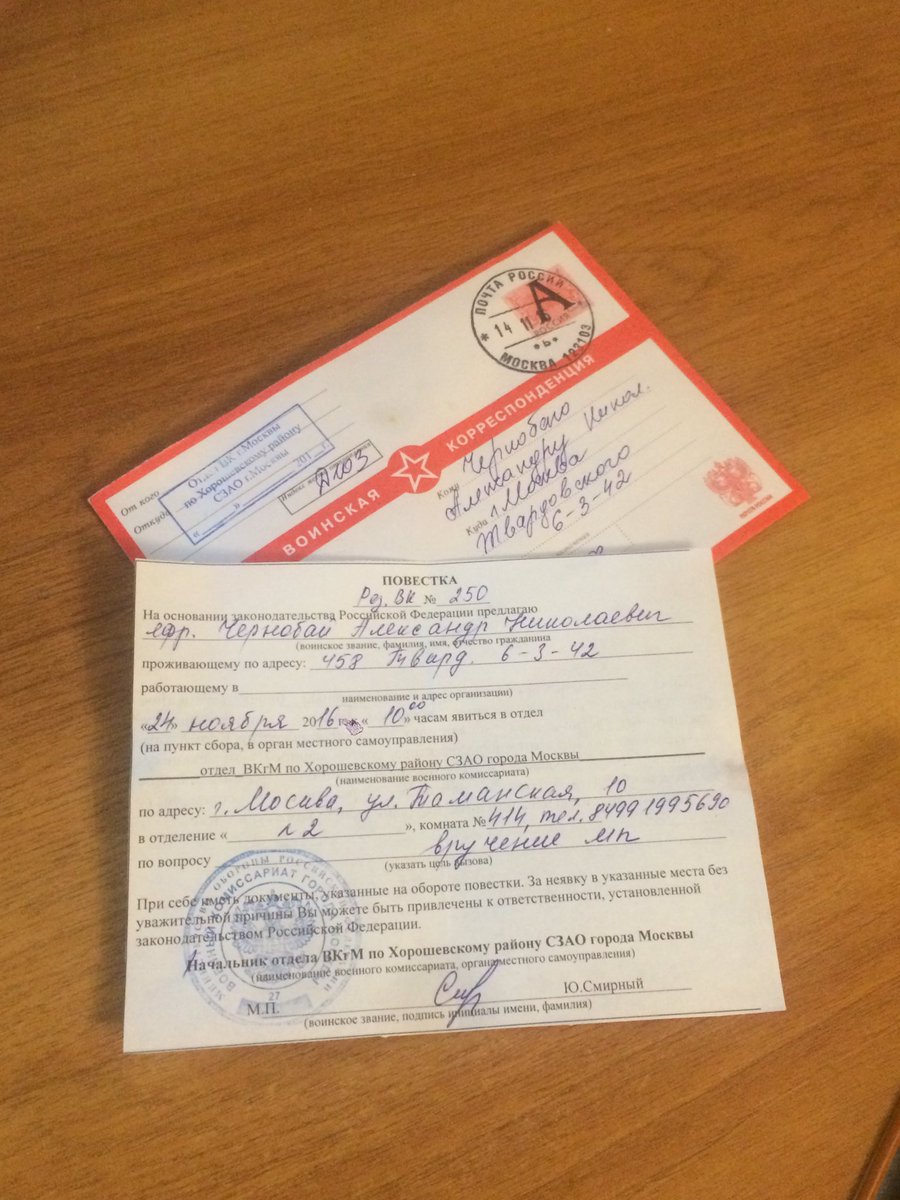 ПОЧТА РОССИИ
14 11
РОССИЯ
А
МОСКВА
ВОИНСКАЯ КОРРЕСПОНДЕНЦИЯ
От кого
Откуда
Отдел ВК г.Москвы
по Хорошевскому району
СЗАО г.Москвы
« » 201 г.
Д203
Кому Чернобаю
Александру Никол.
Куда г. Москва
Твардовского
6-3-42
ПОЧТА РОССИИ
ПОВЕСТКА
Рез. ВК № 250
На основании законодательства Российской Федерации предлагаю
ефр. Чернобай Александр Николаевич
(воинское звание, фамилия, имя, отчество гражданина
проживающему по адресу: 458 Твард. 6-3-42
работающему в
наименование и адрес организации)
«24» ноября 2016 г. к « 10⁰⁰ » часам явиться в отдел
(на пункт сбора, в орган местного самоуправления)
отдел ВКгМ по Хорошевскому району СЗАО города Москвы
(наименование военного комиссариата)
по адресу: г. Москва, ул. Таманская, 10
в отделение « 2 », комната № 414, тел. 8499 1995690
по вопросу вручение мп
(указать цель вызова)
При себе иметь документы, указанные на обороте повестки. За неявку в указанные места без
уважительной причины Вы можете быть привлечены к ответственности, установленной
законодательством Российской Федерации.
Начальник отдела ВКгМ по Хорошевскому району СЗАО города Москвы
(наименование военного комиссариата, органа местного самоуправления)
Ю.Смирный
М.П.
(воинское звание, подпись инициалы имени, фамилия)
ВОЕННЫЙ КОМИССАРИАТ ГОРОДА
27